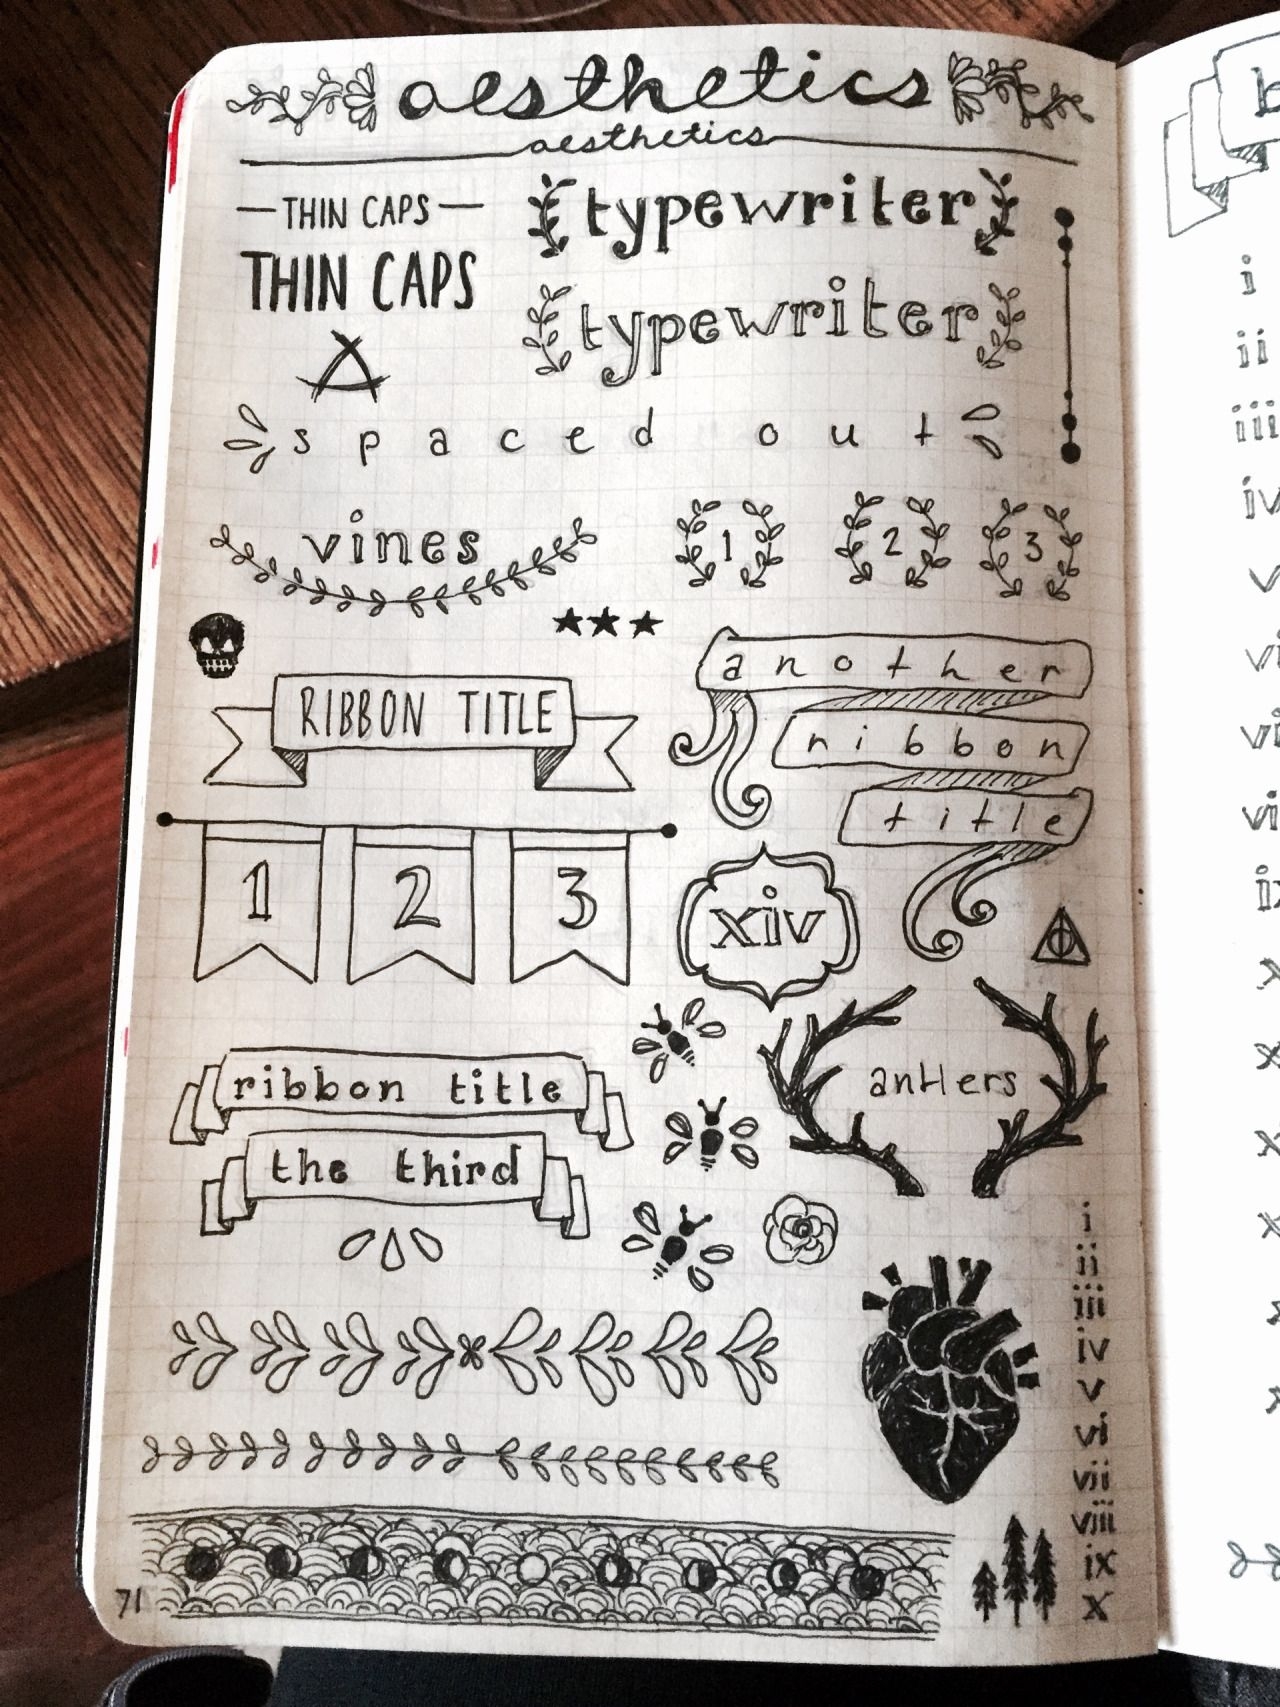 aesthetics
aesthetics
THIN CAPS
THIN CAPS
typewriter
typewriter
A
spaced out
vines
1 2 3
RIBBON TITLE
another
ribbon
title
1 2 3
xiv
ribbon title
the third
antlers
i
ii
iii
iv
v
vi
vii
viii
ix
x
71
i
ii
iii